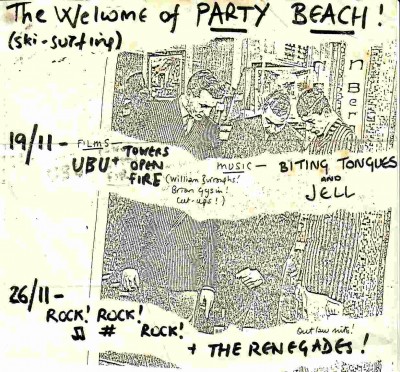 The Welwome of PARTY BEACH!
(ski-surfing)
n
Ber
19/11 - FILMS -
UBU + TOWERS OPEN FIRE
(William Burroughs!
Brian Gysin!
cut-ups!)
MUSIC - BITING TONGUES
AND
JELL
26/11 -
ROCK! ROCK!
♫ # ROCK!
Outlaw nite!
+ THE RENEGADES!